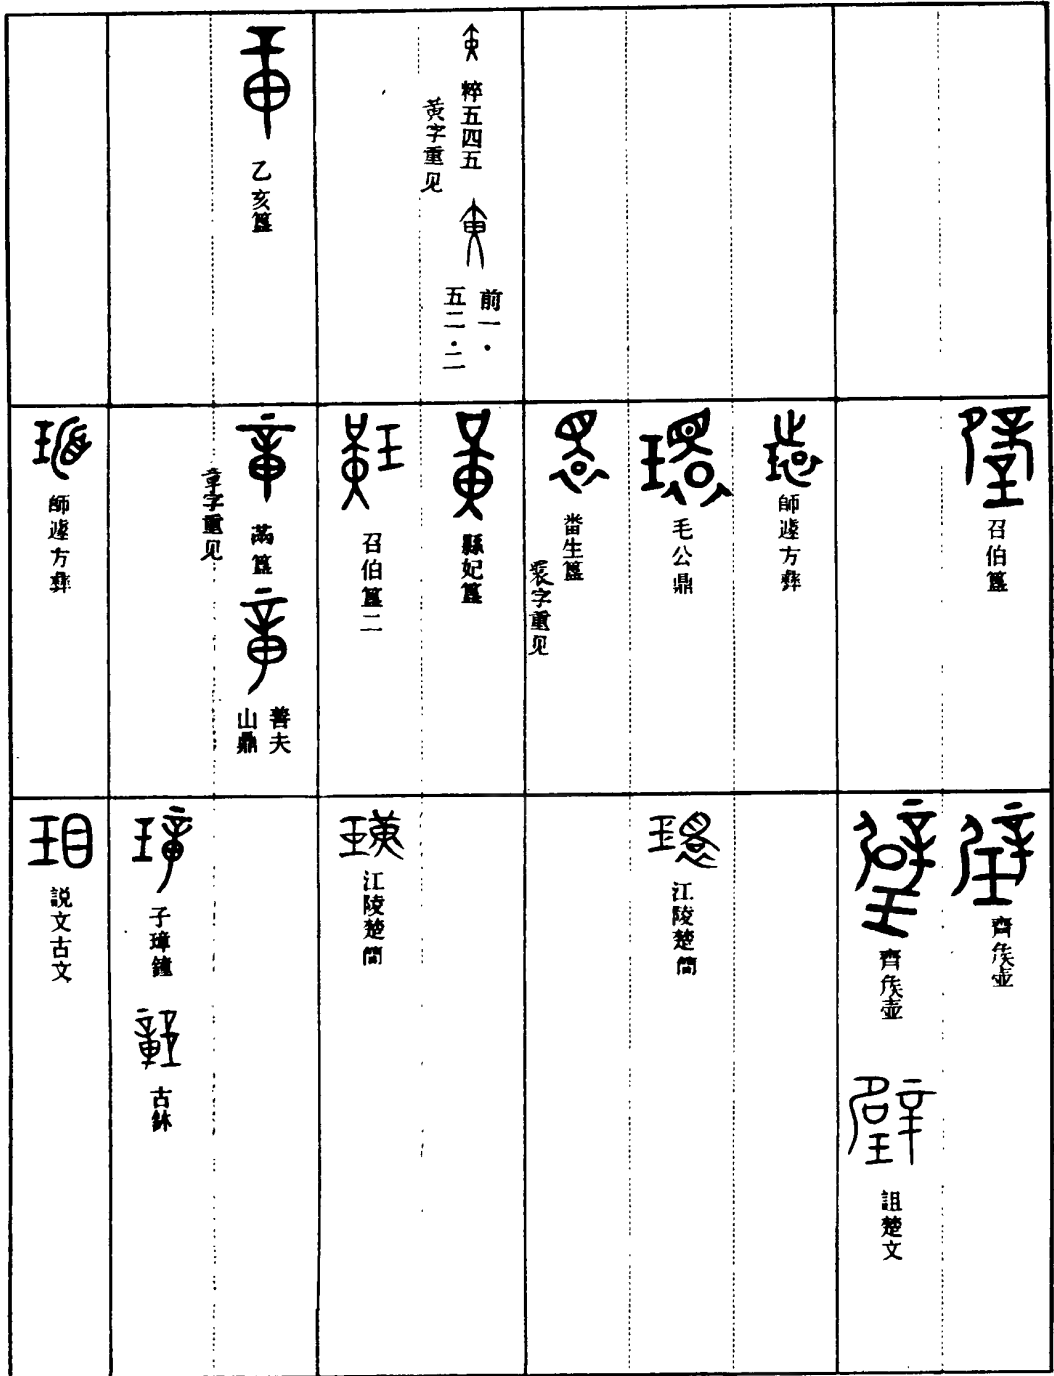 粹五四五
黄字重见
前一・
五二・二
乙亥簋
召伯簋
師遽方彝
毛公鼎
番生簋
字重见
縣妃簋
召伯簋二
㒼簋
善夫
山鼎
章字重见
師遽方彝
齊矦壺
齊矦壺
詛楚文
江陵楚簡
江陵楚簡
子璋鐘
古鉨
説文古文